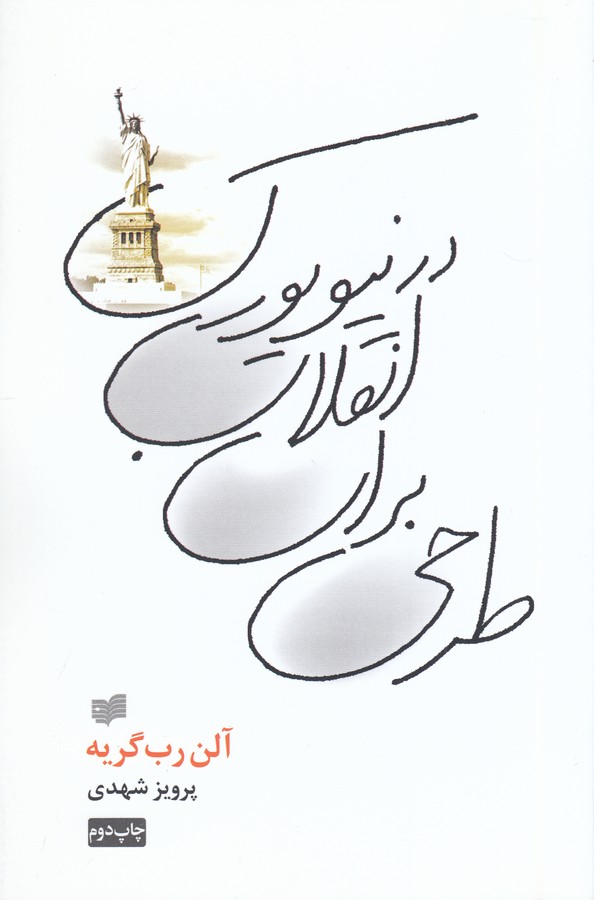 طرحی
برای
انقلاب
در نیویورک
آلن رب‌گریه
پرویز شهدی
چاپ دوم